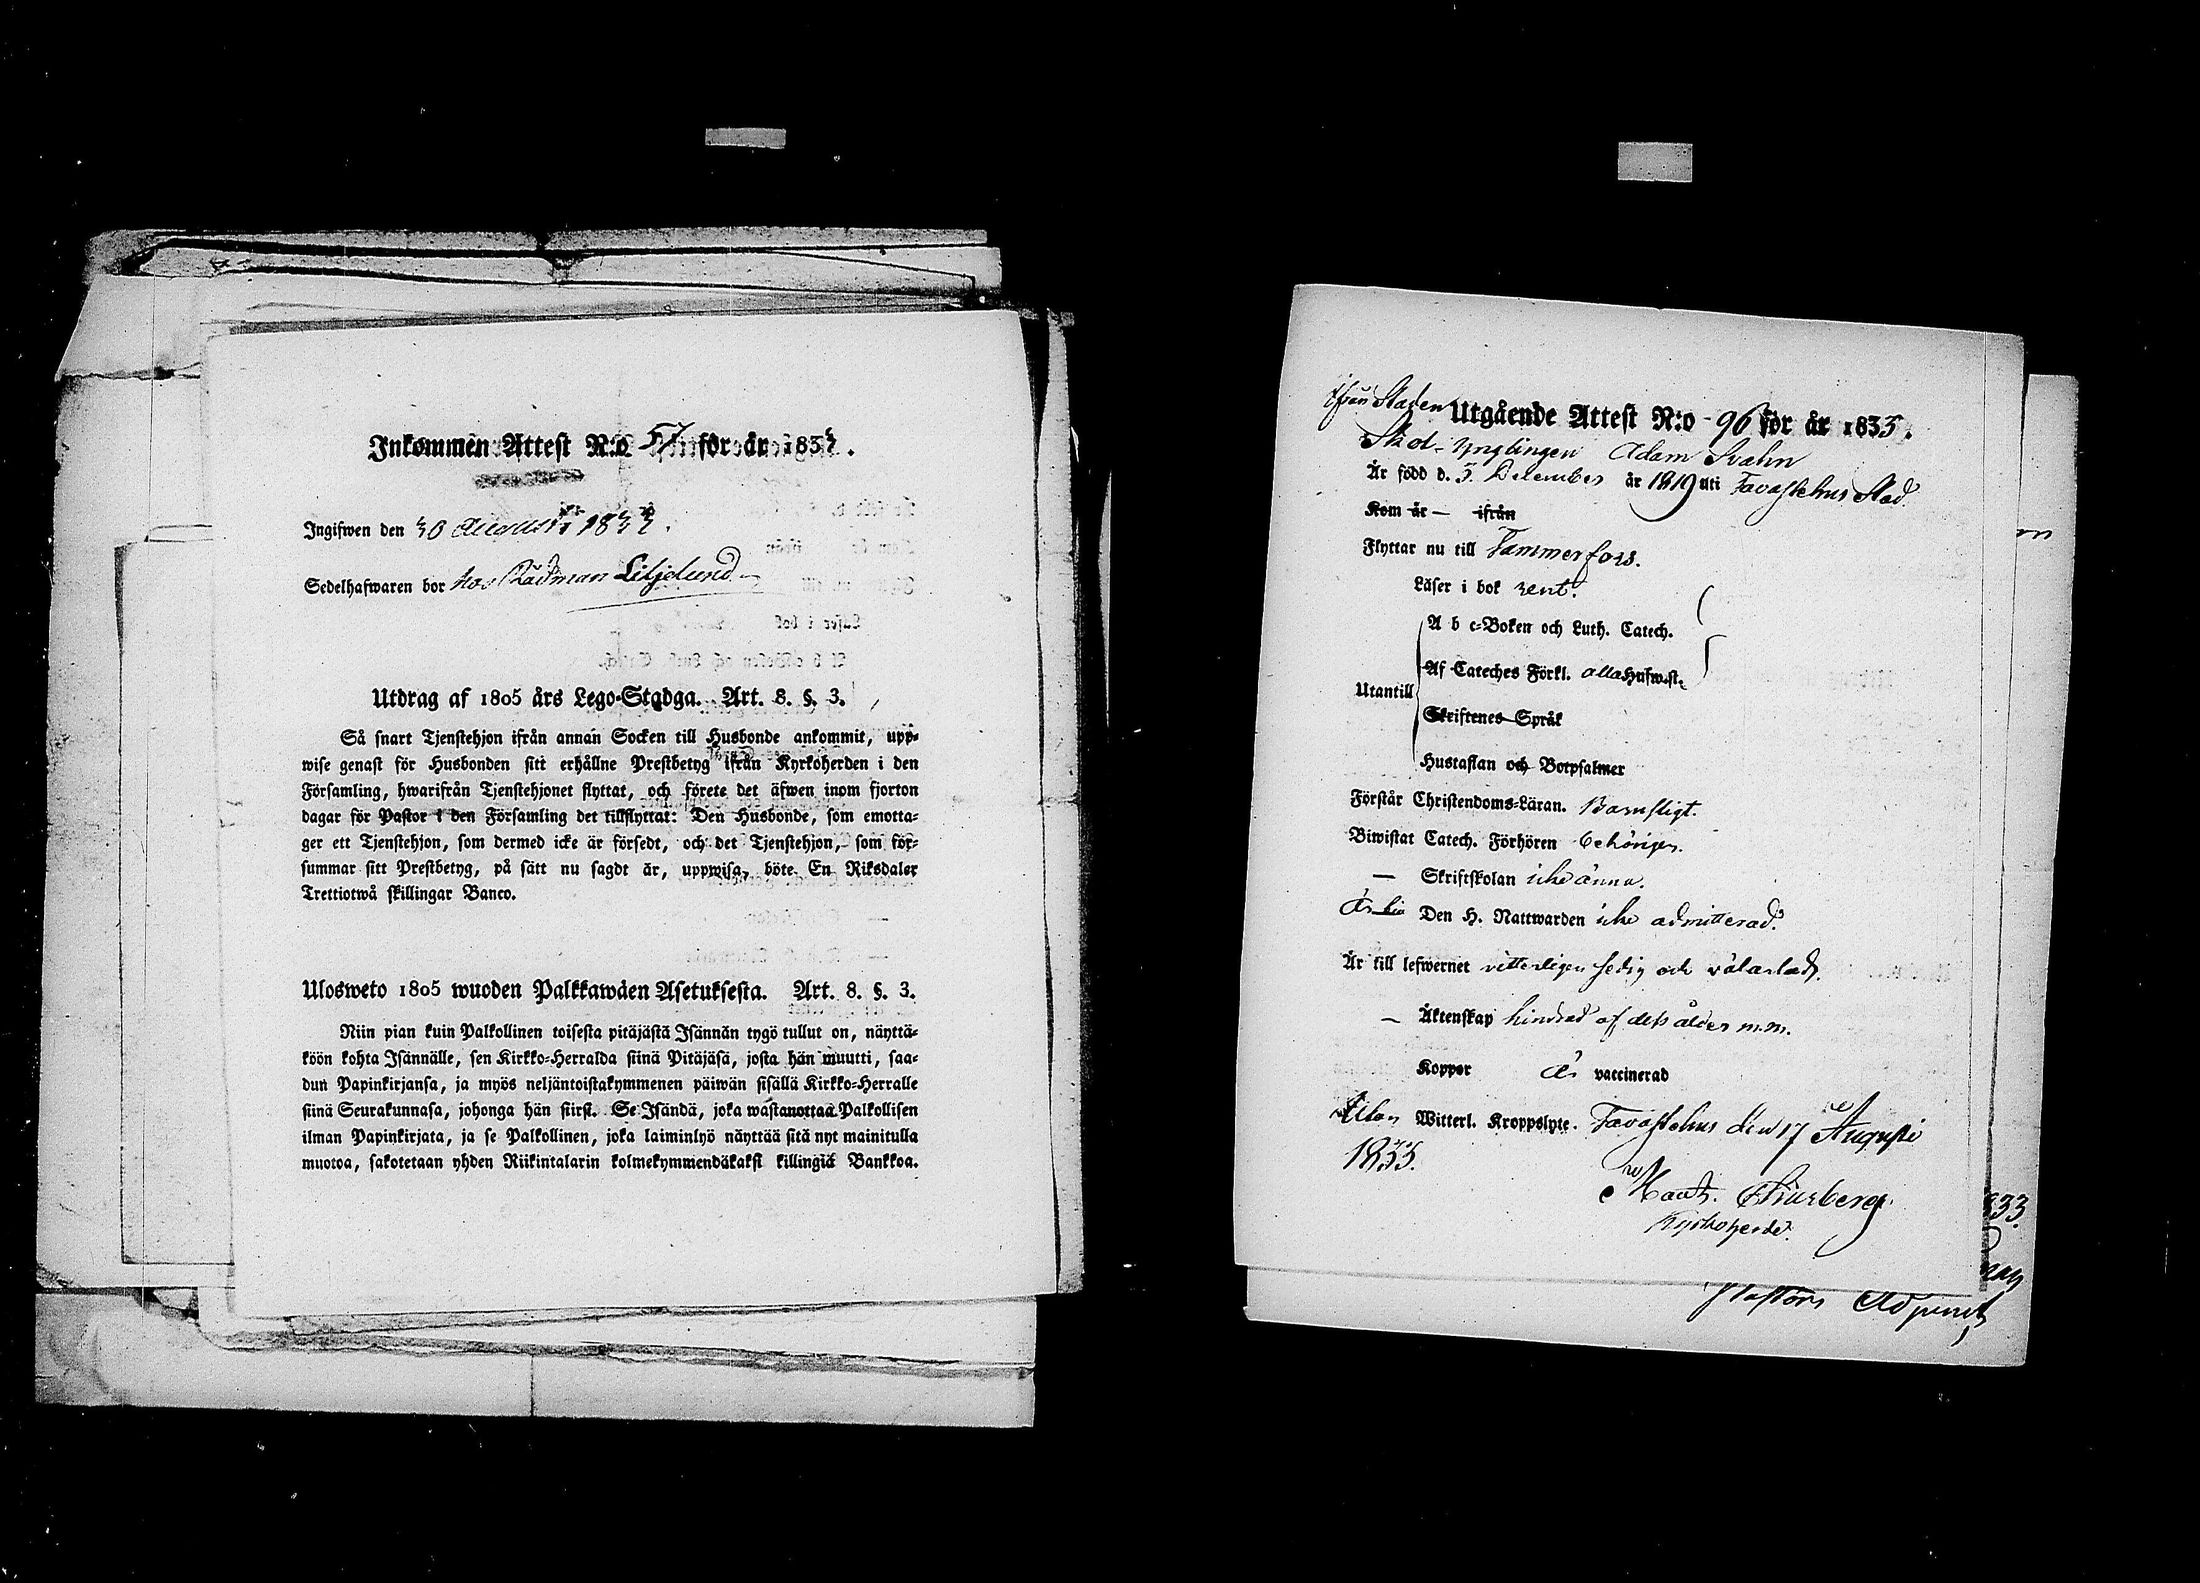 Inkommen Attest N:o 57 för år 1833.
Ingifwen den 30 Augusti 1833.
Sedelhafwaren bor hos Rådman Liljelund
Utdrag af 1805 års Lego-Stadga. Art. 8. §. 3.
Så snart Tjenstehjon ifrån annan Socken till Husbonde ankommit, upp-
wise genast för Husbonden sitt erhållne Prestbetyg ifrån Kyrkoherden i den
Församling, hwarifrån Tjenstehjonet flyttat, och förete det äfwen inom fjorton
dagar för Pastor i den Församling det tillflyttat: Den Husbonde, som emotta-
ger ett Tjenstehjon, som dermed icke är försedt, och det Tjenstehjon, som för-
summar sitt Prestbetyg, på sätt nu sagdt är, uppwisa, böte En Riksdaler
Trettiotwå skillingar Banco.
Ulosweto 1805 wuoden Palkkawäen Asetuksesta. Art. 8. §. 3.
Niin pian kuin Palkollinen toisesta pitäjästä Isännän tygö tullut on, näyttä-
köön kohta Isännälle, sen Kirkko-Herralda siinä Pitäjäsä, josta hän muutti, saa-
dun Papinkirjansa, ja myös neljäntoistakymmenen päiwän sisällä Kirkko-Herralle
siinä Seurakunnasa, johonga hän siirst. Se Isändä, joka wastanottaa Palkollisen
ilman Papinkirjata, ja se Palkollinen, joka laiminlyö näyttää sitä nyt mainitulla
muotoa, sakotetaan yhden Riikintalarin kolmekymmendäkaksi killingiä Bankkoa.
ifrån Staden Utgående Attest N:o 96 för år 1833.
Skol-Ynglingen Adam Svahn
Är född d. 5. December år 1819 uti Tavastehus Stad.
Kom år — ifrån
Flyttar nu till Tammerfors.
Läser i bok rent.
A b c-Boken och Luth. Catech.
Af Cateches Förkl. alla Hufwst.
Utantill
Skriftenes Språk
Hustaflan och Botpsalmer
Förstår Christendoms-Läran. Barnsligt.
Biwistat Catech. Förhören behörigen.
— Skriftskolan icke ännu.
Den H. Nattwarden icke admitterad.
Är till lefwernet vitterligen sedig och välartad.
— Äktenskap hindrad af dess ålder m.m.
Koppor Är vaccinerad
Utan Witterl. Kroppslyte. Tavastehus den 17 Augusti
1833.
Kyrkoherde.
833.
Pastors Adjunct